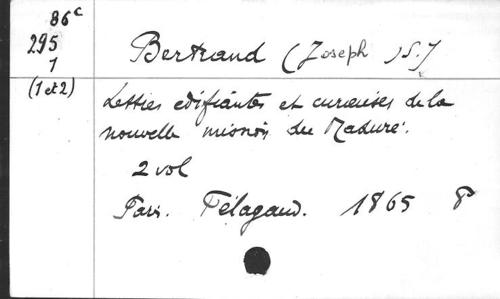 86c
295
1
(1 et 2)
Bertrand (Joseph) S.J
Lettres édifiantes et curieuses de la
nouvelle mission du Maduré.
2 vol
Paris. Pélagaud. 1865 P